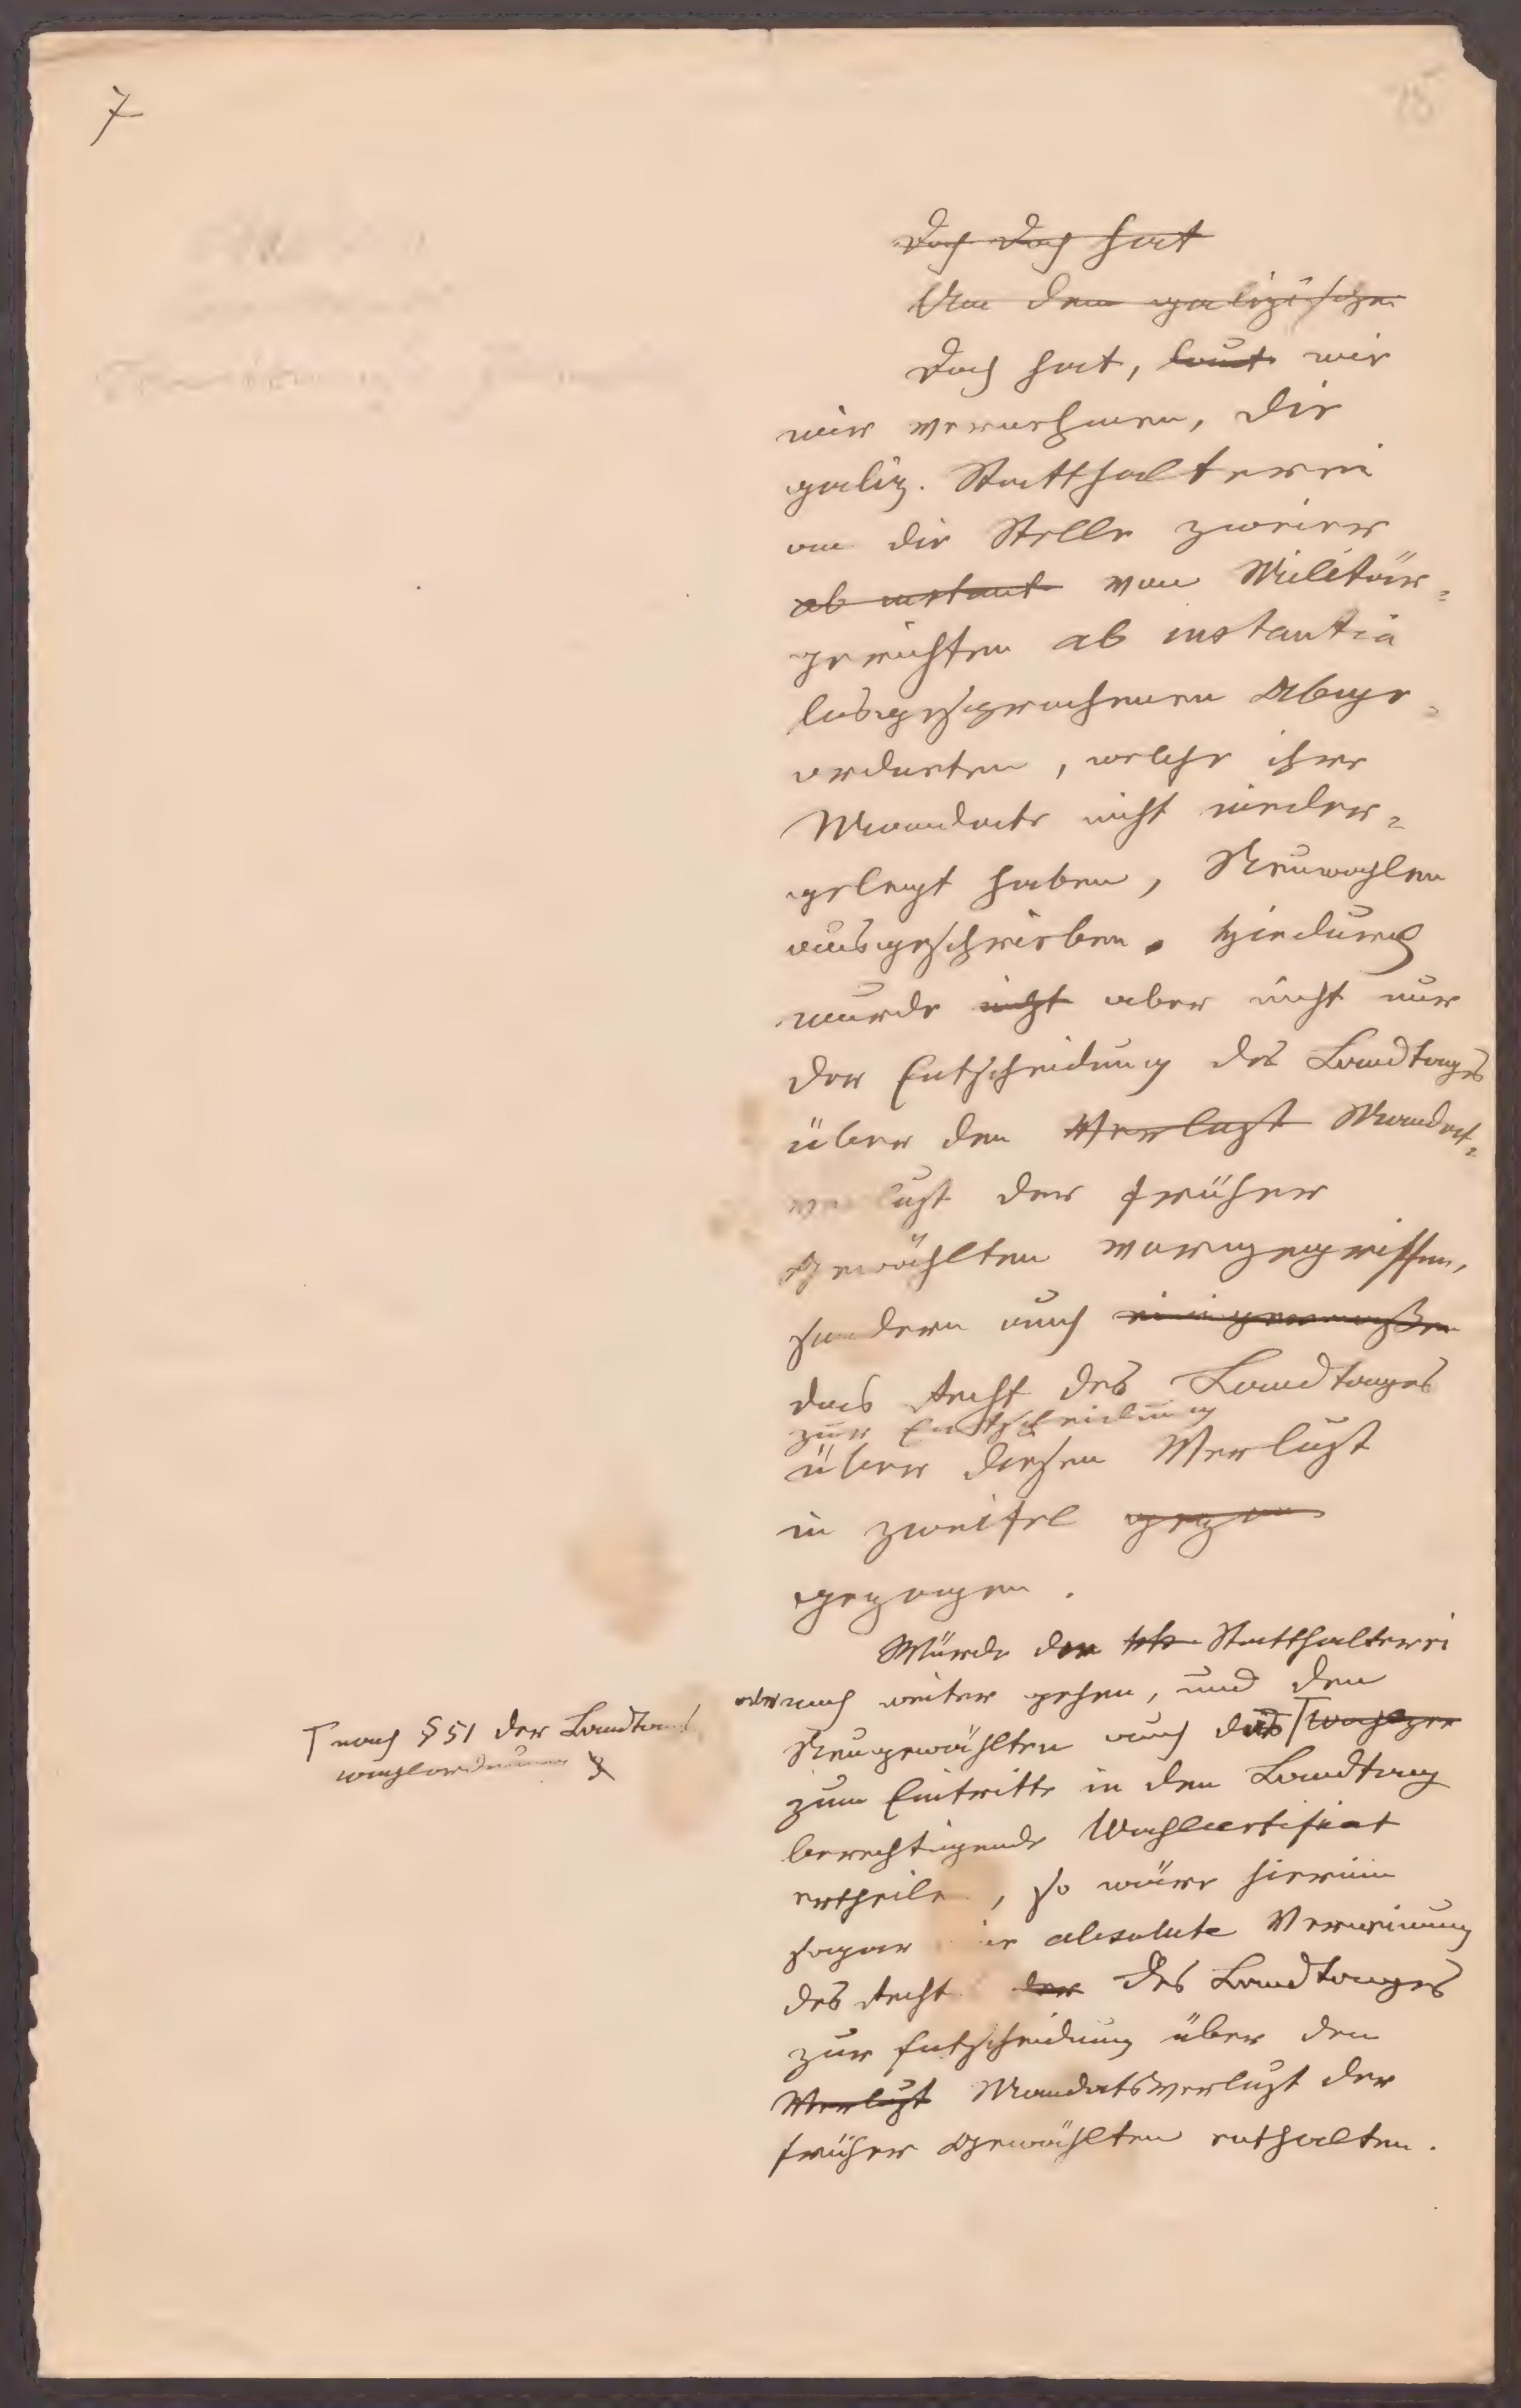 7
75
Doch doch hat
Um dem galizischen
Doch hat, laut wie
wir vernehmen, die
galiz. Statthalterei
an die Stelle zweier
ab instant von Militär-
gerichten ab instantia
losgesprochenen Abge-
ordneten, welche ihre
Mandate nicht nieder-
gelegt haben, Neuwahlen
ausgeschrieben. Hiedurch
wurde nicht aber nicht nur
der Entscheidung des Landtages
über den Verlust Mandat-
verlust der früher
Gewählten vorgegriffen,
sondern auch einigermaßen
das Recht des Landtages
zur Entscheidung
über diesen Verlust
in Zweifel gezo
gezogen.
Würde die kk Statthalterei
aber noch weiter gehen, und den
Neugewählten auch das
nach § 51 der Landtags
wahlordnung
zum Eintritte in den Landtag
berechtigende Wahlcertificat
ertheilen, so wäre hierin
sogar die absolute Verneinung
des Rechts der des Landtages
zur Entscheidung über den
Verlust Mandatsverlust der
früher Gewählten enthalten.